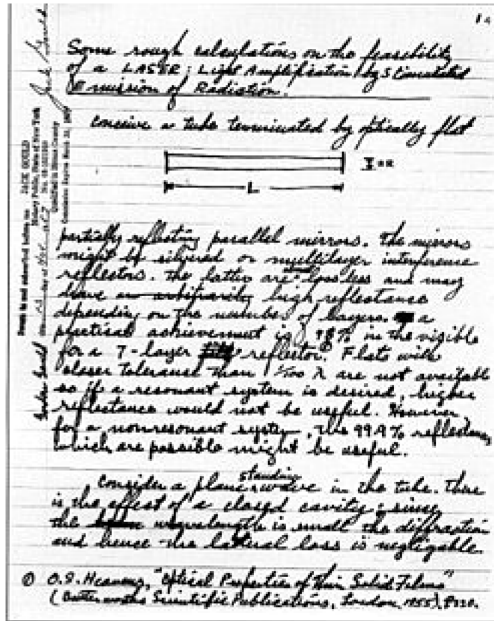 1.
Some rough calculations on the feasibility
of a LASER: Light Amplification by Stimulated
Emission of Radiation.
conceive a tube terminated by optically flat
L
partially reflecting parallel mirrors. The mirrors
might be silvered or multilayer interference
reflectors. The latter are lossless and may
have high reflectance
depending on the number of layers. a
practical achievement is 98% in the visible
for a 7-layer reflector. Flats with
closer tolerance than 1/100 λ are not available
so if a resonant system is desired, higher
reflectance would not be useful. However
for a nonresonant system, the 99.9% reflectances
which are possible might be useful.
Consider a plane standing wave in the tube. There
is the effect of a closed cavity; since
the wavelength is small the diffraction
and hence the lateral loss is negligable.
O.S. Heavens, "Optical Properties of Thin Solid Films"
(Butterworths Scientific Publications, London, 1955), p220.
JACK GOULD
Notary Public, State of New York
Qualified in Bronx County
Commission Expires March 30,